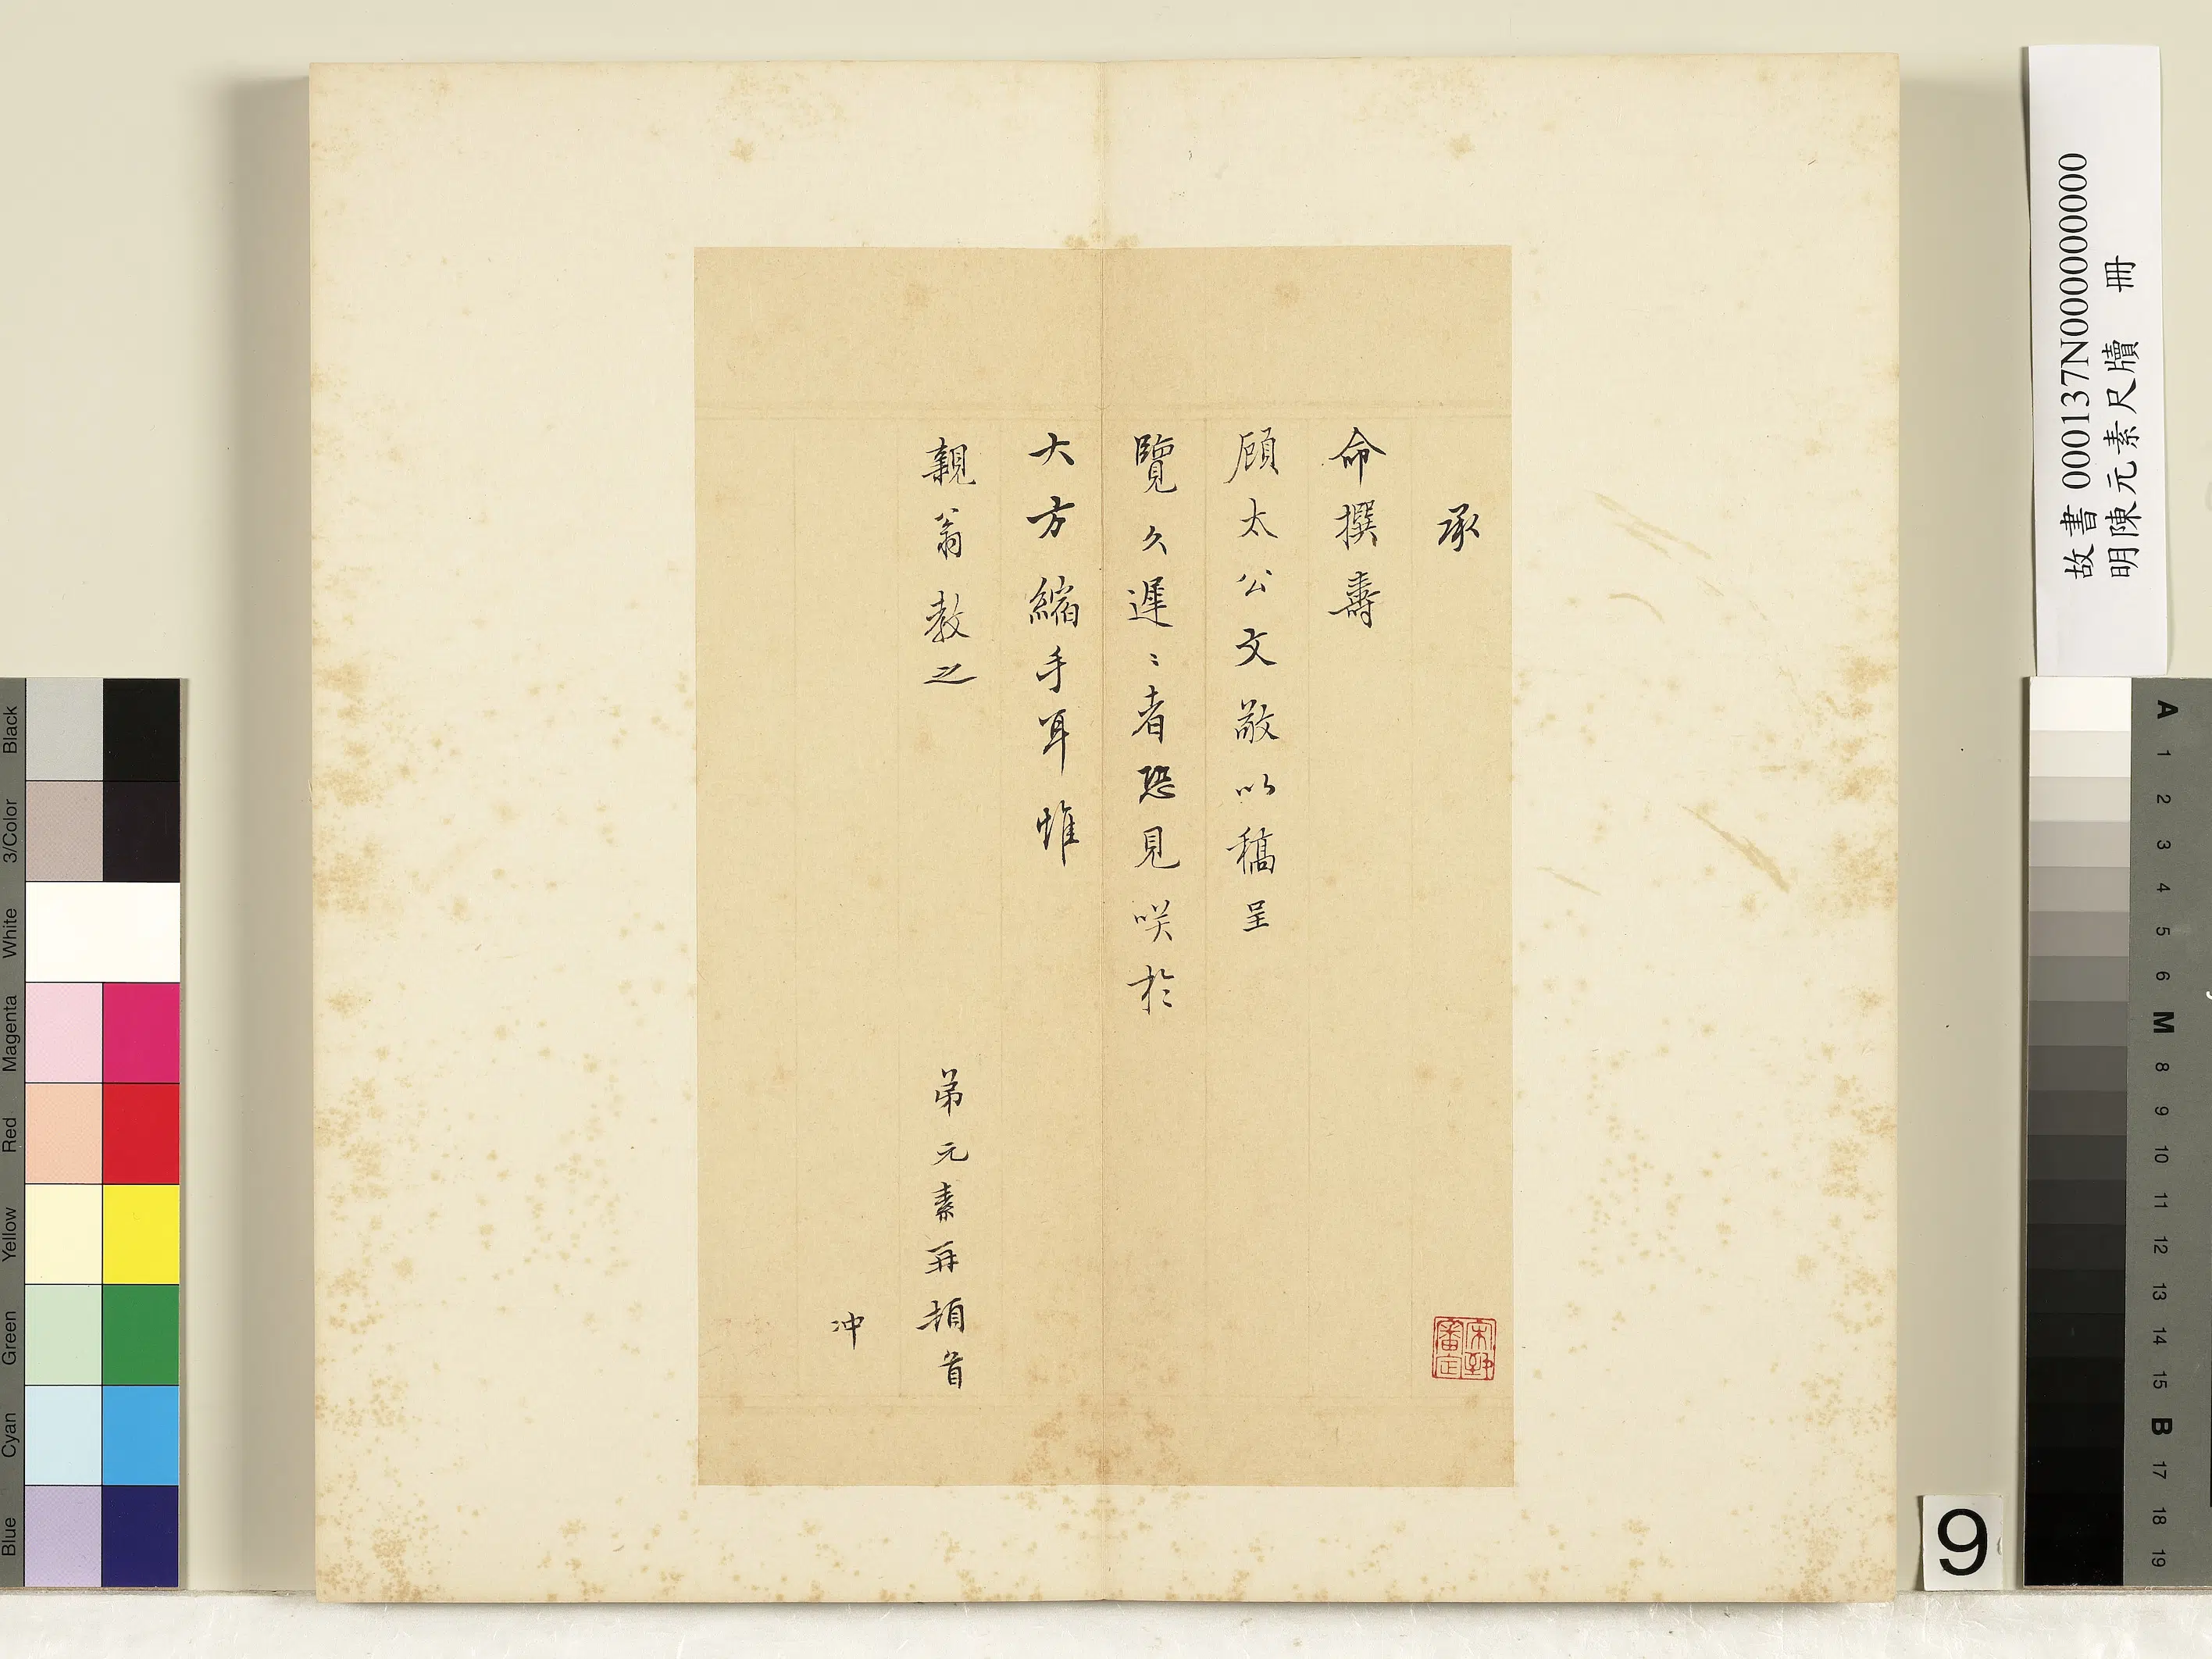 承
命撰壽
顧太公文敬以稿呈
覽久遲〻者恐見咲於
大方縮手耳惟
親翁教之
弟元素再頓首
冲
審定
故書 000137N000000000
明陳元素尺牘 冊
9
Black
3/Color
White
Magenta
Red
Yellow
Green
Cyan
Blue
A
1
2
3
4
5
6
M
8
9
10
11
12
13
14
15
B
17
18
19